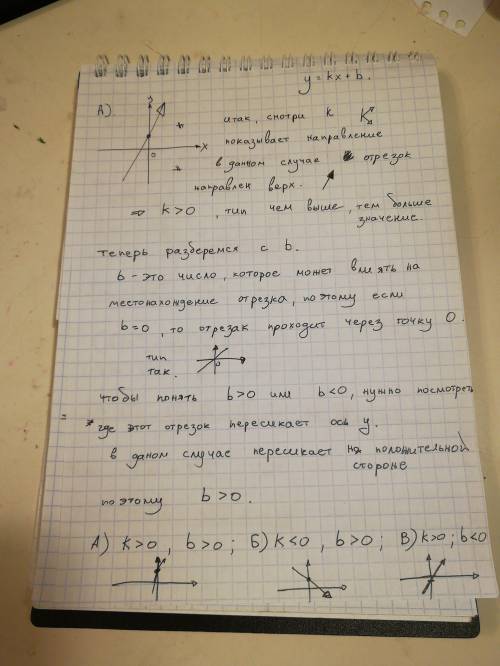 y = kx + b.
А). y итак, смотри k K
x показывает направление
0 в данном случае отрезок
направлен верх.
⇒ k>0, тип чем выше, тем больше
значение.
теперь разберемся с b.
b - это число, которое может влиять на
местонахождение отрезка, поэтому если
b=0, то отрезак проходит через точку 0.
тип
так. 0
чтобы понять b>0 или b<0, нужно посмотреть
где этот отрезок пересикает ось y.
в даном случае пересикает на положительной
стороне
поэтому b>0.
А) k>0, b>0; Б) k<0, b>0; В) k>0; b<0